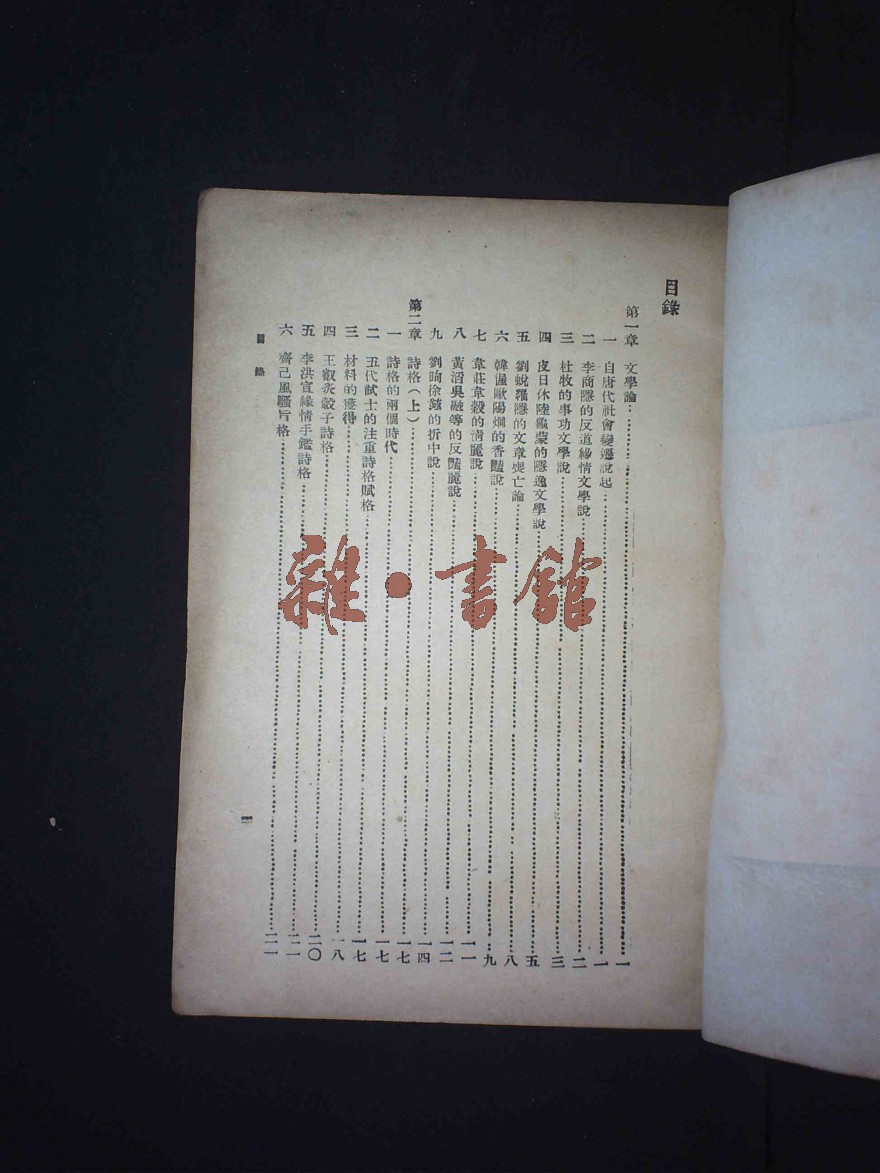 目錄
第一章 文學論……一
一 自唐代社會變遷說起……一
二 李商隱的反道緣情文學說……二
三 杜牧的事功文學說……三
四 皮日休陸龜蒙的隱逸文學說……五
五 劉蛻羅隱的文章喪亡論……八
六 韓偓歐陽烱的香豔說……九
七 韋莊韋縠的清麗說……一一
八 黃滔吳融等的反豔麗說……一二
九 劉昫徐鉉的折中說……一四
第二章 詩格(上)……一七
一 詩格的兩個時代……一七
二 五代試士的注重詩格賦格……一七
三 材料的獲得……一八
四 王叡炙轂子詩格……二〇
五 李洪宣緣情手鑑詩格……二一
六 齊己風騷旨格……二一
目錄
一
雜·書館